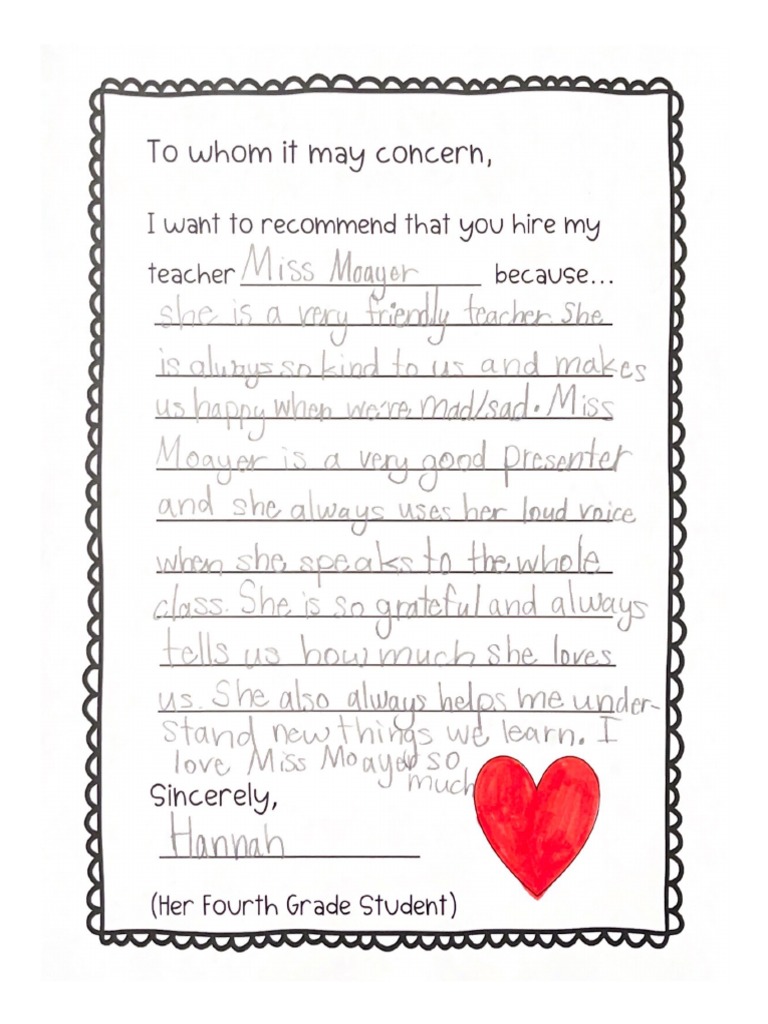 To whom it may concern,
I want to recommend that you hire my
teacher Miss Moayer because...
she is a very friendly teacher. She
is always so kind to us and makes
us happy when we're mad/sad. Miss
Moayer is a very good presenter
and she always uses her loud voice
when she speaks to the whole
class. She is so grateful and always
tells us how much she loves
us. She also always helps me under-
stand new things we learn. I
love Miss Moayer so
much
Sincerely,
Hannah
(Her Fourth Grade Student)